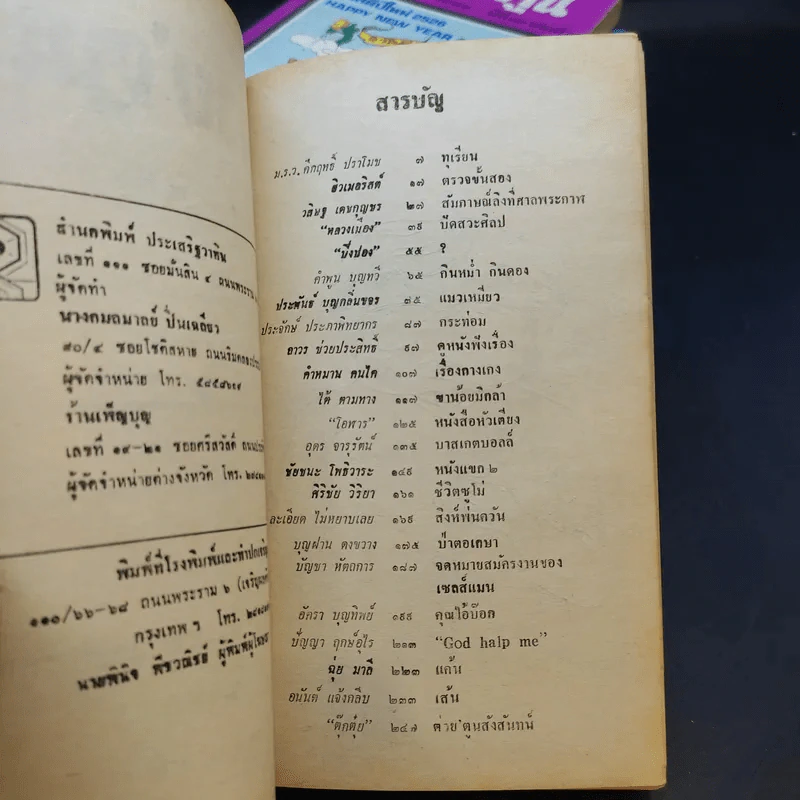 สวัสดีปีใหม่ 2526
HAPPY NEW YEAR
สำนักพิมพ์ ประเสริฐวาทิน
เลขที่ ๑๑๑ ซอยมั่นสิน ๔ ถนนพระราม
ผู้จัดทำ
นางกมลมาลย์ ปิ่นเฉลียว
๙๐/๔ ซอยโชคสหาย ถนนริมคลอง
ผู้จัดจำหน่าย โทร. ๕๔๕๘๖๑๙
ร้านเพ็ญบุญ
เลขที่ ๑๙-๒๑ ซอยศรีสวัสดิ์ ถนน
ผู้จัดจำหน่ายต่างจังหวัด โทร.
พิมพ์ที่โรงพิมพ์และทำปก
๑๑๐/๖๖-๖๘ ถนนพระราม ๖
กรุงเทพฯ โทร.
นายพินิจ
สารบัญ
ม.ร.ว.คึกฤทธิ์ ปราโมช ๗ ทุเรียน
ฮิวเมอริสต์ ๑๗ ตรวจขั้นสอง
วสิษฐ เดชกุญชร ๒๗ สัมภาษณ์ลิงที่ศาลพระกาฬ
"หลวงเมือง" ๓๙ ปัดสวะศิลป
"ปิ่งปอง" ๕๕ ?
คำพูน บุญทวี ๖๕ กินหม่ำ กินดอง
ประพันธ์ บุญกลิ่นขจร ๗๕ แมวเหมียว
ประจักษ์ ประภาพิทยากร ๘๗ กระท่อม
ถาวร ช่วยประสิทธิ์ ๙๗ ดูหนังฟังเรื่อง
คำหมาน คนไค ๑๐๗ เรื่องกางเกง
ไต้ ตามทาง ๑๑๗ ขาน้อยมิกล้า
"โอฬาร" ๑๒๕ หนังสือหัวเตียง
อุดร จารุรัตน์ ๑๓๕ บาสเกตบอลล์
ชัยชนะ โพธิวาระ ๑๔๙ หนังแขก ๒
ศิริชัย วิริยา ๑๖๑ ชีวิตซูโม่
ละเอียด ไม่หยาบเลย ๑๖๙ สิงห์พ่นควัน
บุญฝาน ตงขวาง ๑๗๕ บ๊าตอเกษา
บัญชา หัตถการ ๑๘๗ จดหมายสมัครงานของ
เซลส์แมน
อัครา บุญทิพย์ ๑๙๙ คุณไอ้บ๊อก
ปัญญา ฤกษ์อุไร ๒๑๓ "God halp me"
ฉุ่ย มาลี ๒๒๓ แค้น
อนันต์ แจ้งกลีบ ๒๓๓ เส้น
"ตุ๊กตุ่ย" ๒๔๗ ค่วย'ตูนสังสันทน์